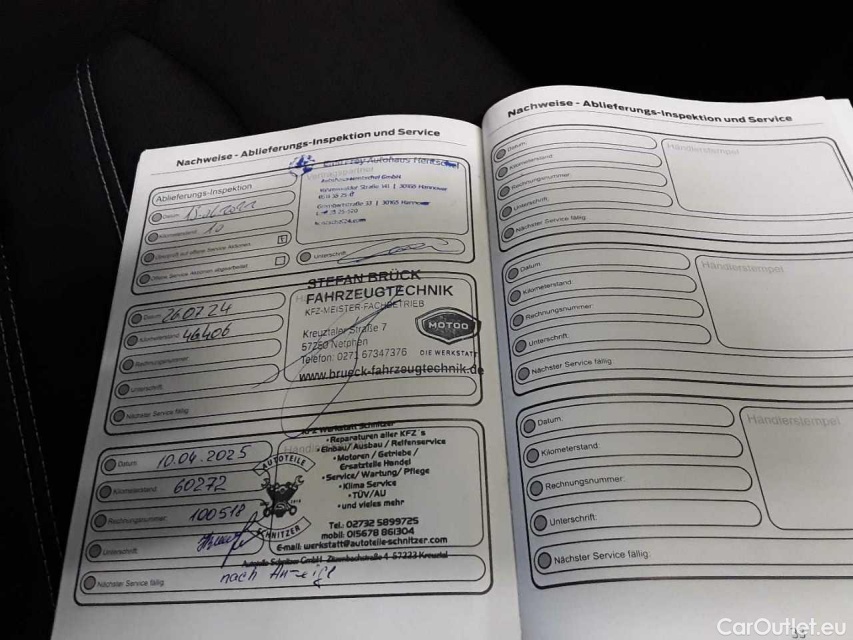 Nachweise - Ablieferungs-Inspektion und Service
Autohaus Hentschel
Vertragspartner
Ablieferungs-Inspektion
Datum:
Kilometerstand: 10
30165 Hannover
30165 Hannover
Überprüft auf offene Service Aktionen
Offene Service Aktionen abgearbeitet
Unterschrift:
Datum: 26.07.24
Kilometerstand: 46406
Rechnungsnummer:
Unterschrift:
Nächster Service fällig:
STEFAN BRÜCK
FAHRZEUGTECHNIK
KFZ-MEISTER-FACHBETRIEB
Kreuztaler Straße 7
57250 Netphen
Telefon: 0271 67347376
www.brueck-fahrzeugtechnik.de
MOTOO
DIE WERKSTATT
Datum: 10.04.2025
Kilometerstand: 60272
Rechnungsnummer: 100518
Unterschrift:
Nächster Service fällig: nach Anzeige
KFZ Werkstatt Schnitzer
•Reparaturen aller KFZ´s
•Einbau/ Ausbau / Reifenservice
•Motoren / Getriebe /
Ersatzteile Handel
•Service/Wartung/ Pflege
•Klima Service
•TÜV/AU
•und vieles mehr
Tel.: 02732 5899725
mobil: 015678 861304
E-mail: werkstatt@autoteile-schnitzer.com
Autoteile Schnitzer GmbH 57223 Kreuztal
AUTOTEILE
SCHNITZER
Nachweise - Ablieferungs-Inspektion und Service
Datum:
Kilometerstand:
Rechnungsnummer:
Unterschrift:
Nächster Service fällig:
Händlerstempel
Datum:
Kilometerstand:
Rechnungsnummer:
Unterschrift:
Nächster Service fällig:
Händlerstempel
Datum:
Kilometerstand:
Rechnungsnummer:
Unterschrift:
Nächster Service fällig:
Händlerstempel
CarOutlet.eu